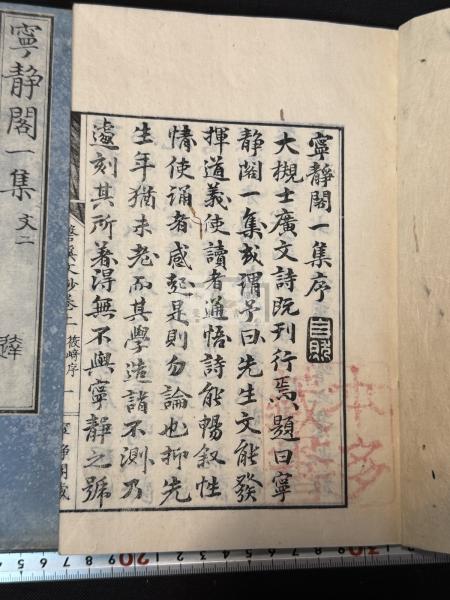 寧靜閣一集序
大槻士廣文詩既刊行焉題曰寧
靜閣一集或謂予曰先生文能發
揮道義使讀者通悟詩能暢叙性
情使誦者感起是則勿論也抑先
生年猶未老而其學造詣不測乃
遽刻其所著得無不與寧靜之號
磐溪文鈔卷一 筱崎序 一
寧靜閣藏
寧靜閣一集 文二